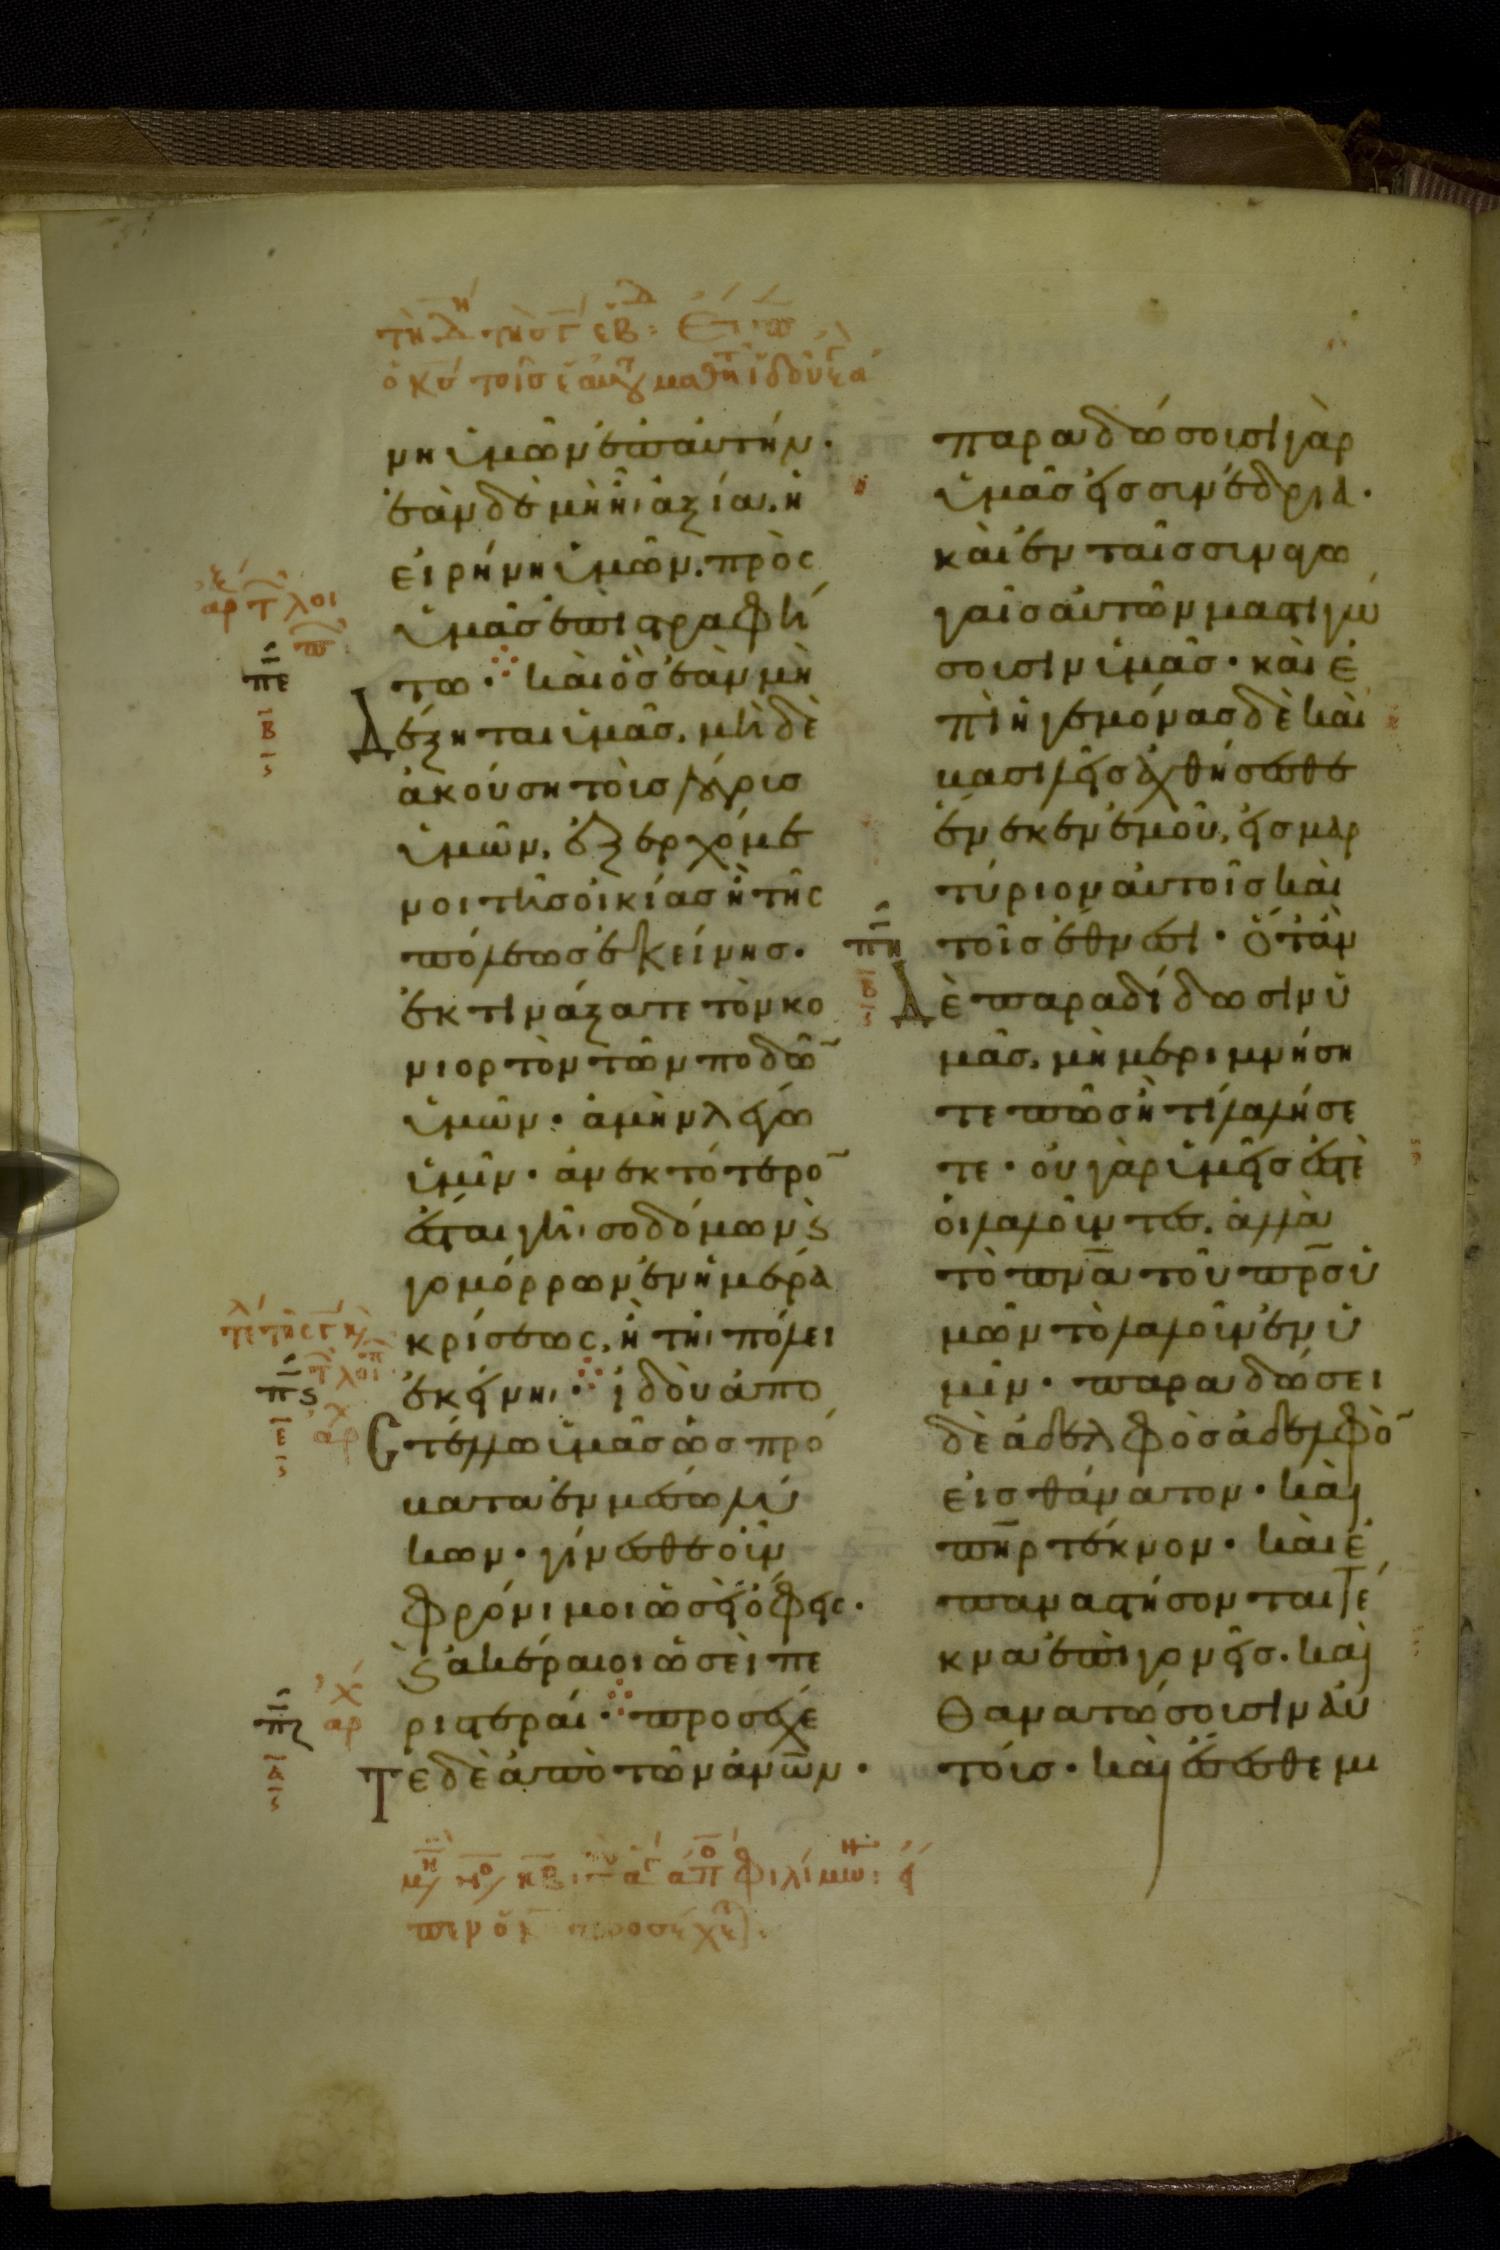 νη ὑμῶν ἐπ' αὐτήν·
ἐὰν δὲ μὴ ἦι ἀξία, ἡ
εἰρήνη ὑμῶν, πρὸς
ὑμᾶς ἐπιστραφή
τω· καὶ ὃς ἐὰν μὴ
πε
β
Δέξηται ὑμᾶς, μηδὲ
ἀκούση τοὺς λόγους
ὑμῶν, ἐξερχόμε
νοι τῆς οἰκίας ἢ τῆς
πόλεως ἐκείνης·
ἐκτινάξατε τὸν κο
νιορτὸν τῶν ποδῶ̄
ὑμῶν· ἀμὴν λέγω
ὑμῖν· ἀνεκτότερο̄
ἔσται γῆ σοδόμων ϗ
γομόρρων ἐν ἡμέρα
κρίσεως, ἢ τῆι πόλει
πς
ε
ἐκείνηι· ἰδοὺ ἀπο
Στέλλω ὑμᾶς ὡς πρό
βατα ἐν μέσω λύ
κων· γίνεσθε οὖν
φρόνιμοι ὡς οἱ ὄφεις·
ϗ ἀκέραιοι ὡσεὶ πε
πζ
ριστεραί· προσέχε
Τε δὲ ἀπὸ τῶν ἀν̅ω̅ν·
παραδώσουσι γὰρ
ὑμᾶς εἰς συνέδρια·
καὶ ἐν ταῖς συναγω
γαῖς αὐτῶν μαστιγώ
σουσιν ὑμᾶς· καὶ ἐ
πὶ ἡγεμόνας δὲ καὶ
βασιλεῖς ἀχθήσεσθε
ἕνεκεν ἐμοῦ, εἰς μαρ
τύριον αὐτοῖς καὶ
πη
β
τοῖς ἔθνεσι· ὅταν
Δὲ παραδίδωσιν ὑ
μᾶς, μὴ μεριμνήση
τε πῶς ἢ τί λαλήσε
τε· οὐ γὰρ ὑμεῖς ἐστὲ
οἱ λαλοῦντες, ἀλλὰ
τὸ πν̅α̅ τοῦ πρ̅ς ὑ
μῶν τὸ λαλοῦν ἐν ὑ
μῖν· παραδώσει
δὲ ἀδελφὸς ἀδελφὸ̄
εἰς θάνατον· καὶ
πη̅ρ τέκνον· καὶ ἐ
παναστήσονται τέ
κνα ἐπὶ γονεῖς· καὶ
θανατώσουσιν αὐ
τούς· καὶ ἔσεσθε μι